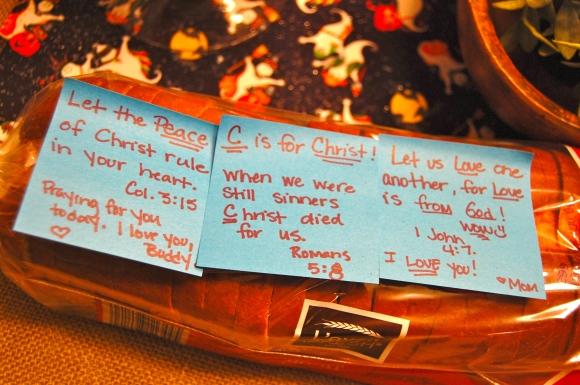 Let the Peace
of Christ rule
in your heart.
Col. 3:15
Praying for you
today. I love you,
Buddy
♡
C is for Christ!
When we were
still sinners
Christ died
for us.
Romans
5:8
Let us Love one
another, for Love
is from God!
WOW
1 John
4:7.
I LOVE you!
♥Mom